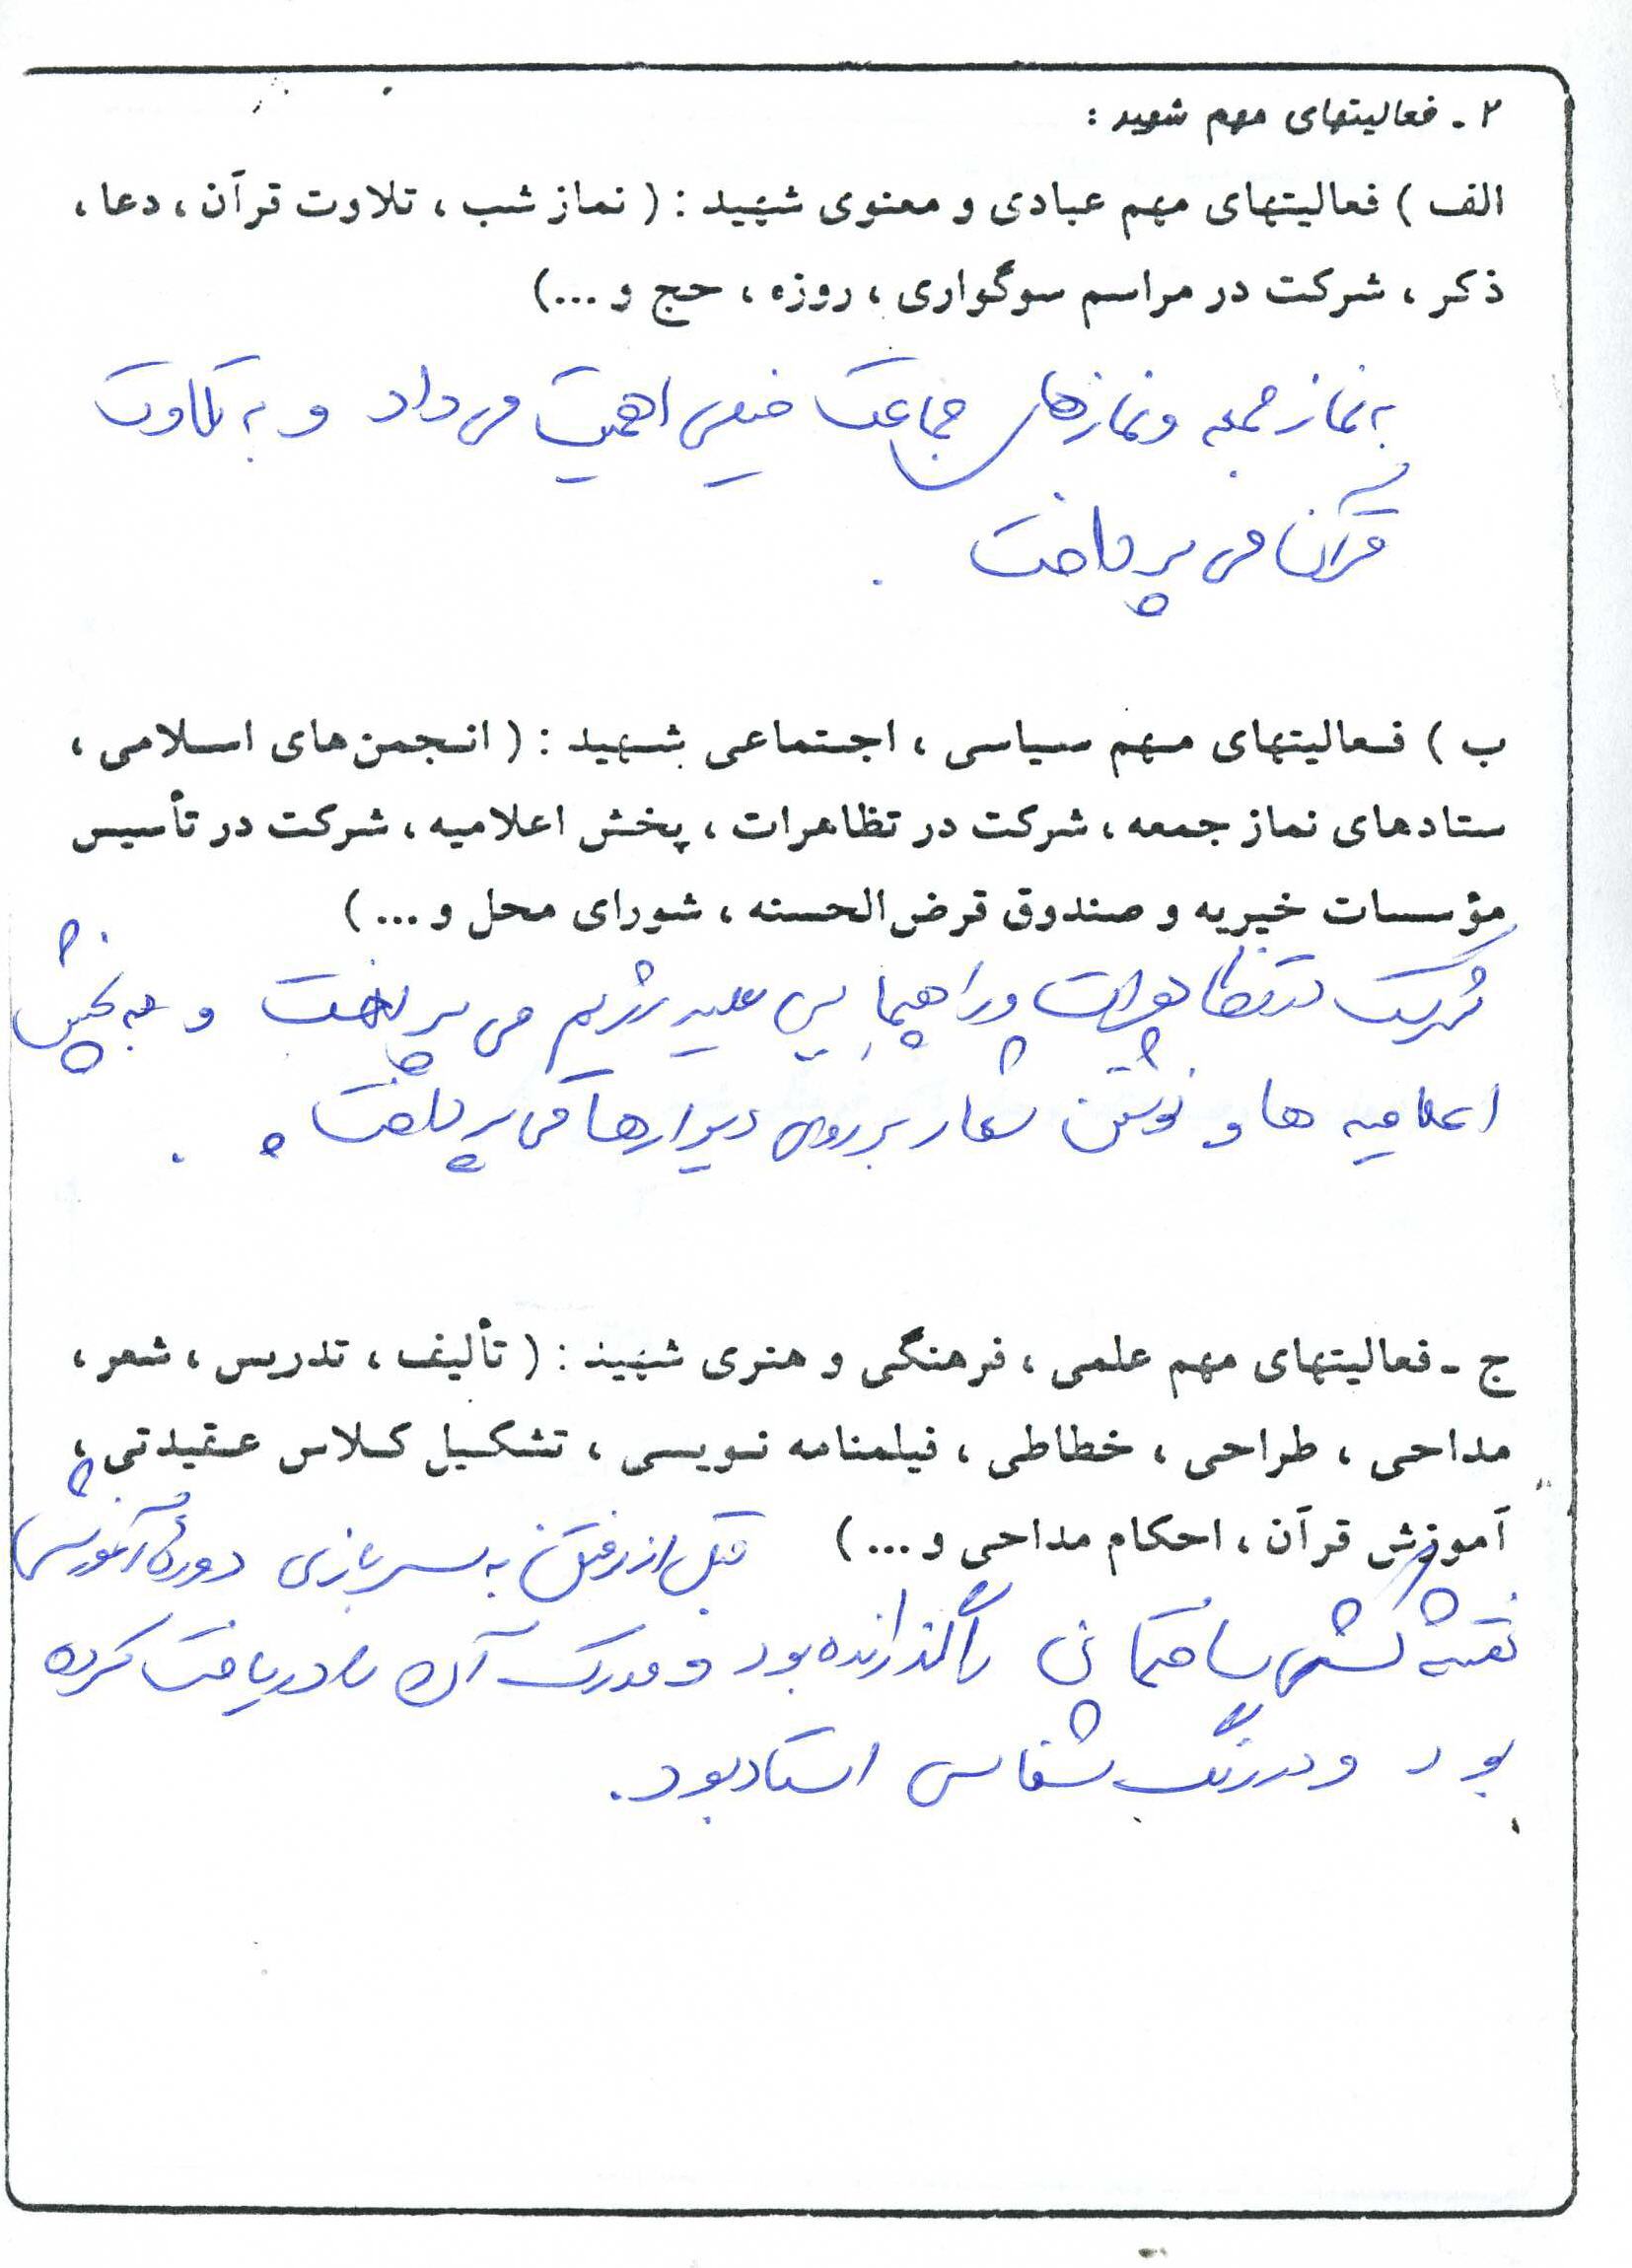 ۲ - فعالیتهای مهم شهید :
الف ) فعالیتهای مهم عبادی و معنوی شهید : ( نماز شب ، تلاوت قرآن ، دعا ،
ذکر ، شرکت در مراسم سوگواری ، روزه ، حج و ...)
به نماز جمعه و نمازهای جماعت خیلی اهمیت می داد و به تلاوت
قرآن می پرداخت .
ب ) فعالیتهای مهم سیاسی ، اجتماعی شهید : ( انجمن‌های اسلامی ،
ستادهای نماز جمعه ، شرکت در تظاهرات ، پخش اعلامیه ، شرکت در تأسیس
مؤسسات خیریه و صندوق قرض‌الحسنه ، شورای محل و ... )
شرکت در تظاهرات و راهپیمایی علیه رژیم می پرداخت و به پخش
اعلامیه ها و نوشتن شعار بر روی دیوارها می پرداخت .
ج - فعالیتهای مهم علمی ، فرهنگی و هنری شهید : ( تألیف ، تدریس ، شعر ،
مداحی ، طراحی ، خطاطی ، فیلمنامه نویسی ، تشکیل کلاس عقیدتی ،
آموزش قرآن ، احکام مداحی و ...) قبل از رفتن به سربازی دورهٔ آموزش
نقشه کشی ساختمانی را گذرانده بود و مدرک آن را دریافت کرده
بود و در رنگ شناسی استاد بود .